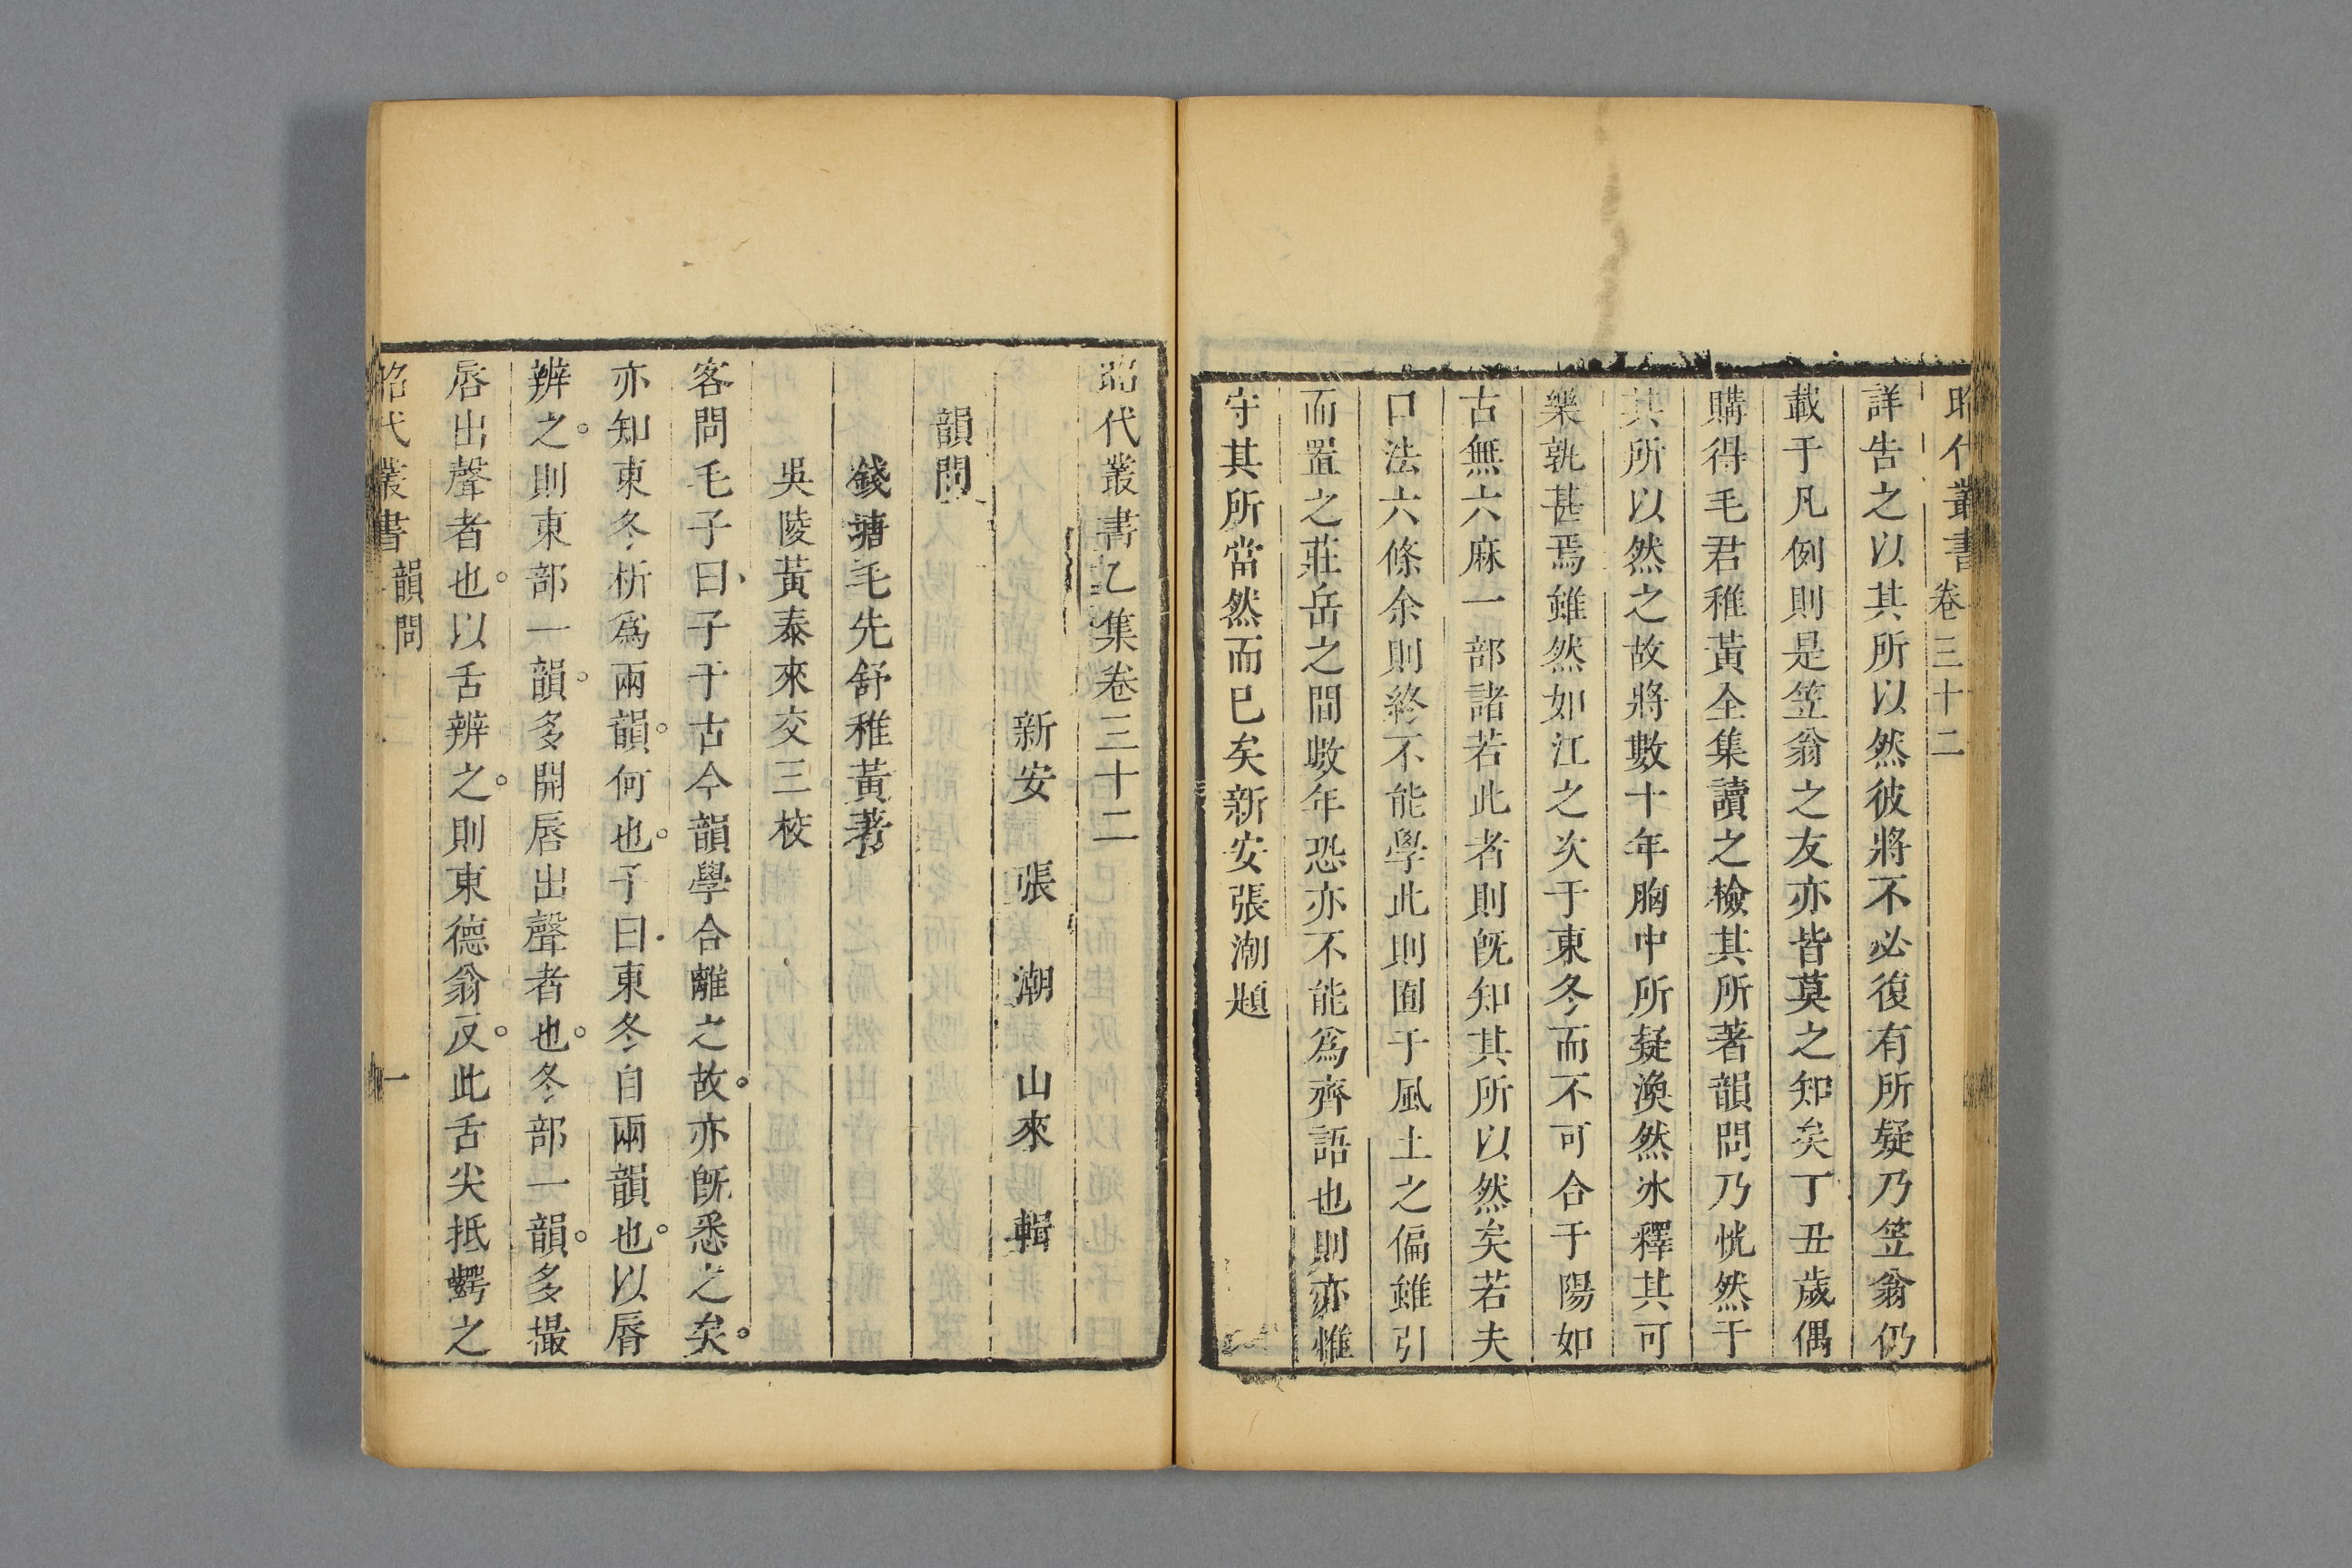 昭代叢書 卷三十二
詳告之以其所以然彼將不必復有所疑乃笠翁仍
載于凡例則是笠翁之友亦皆莫之知矣丁丑歲偶
購得毛君稚黃全集讀之檢其所著韻問乃恍然于
其所以然之故將數十年胸中所疑渙然氷釋其可
樂孰甚焉雖然如江之次于東冬而不可合于陽如
古無六麻一部諸若此者則旣知其所以然矣若夫
口法六條余則終不能學此則囿于風土之偏雖引
而置之莊岳之間數年恐亦不能爲齊語也則亦惟
守其所當然而已矣新安張潮題
昭代叢書乙集卷三十二
新安 張 潮 山來 輯
韻問
錢塘毛先舒稚黃著
吳陵黃泰來交三校
客問毛子曰子于古今韻學合離之故亦旣悉之矣
亦知東冬析爲兩韻何也予曰東冬自兩韻也以脣
辨之則東部一韻多開脣出聲者也冬部一韻多撮
脣出聲者也以舌辨之則東德翁反此舌尖抵齶之
昭代叢書 韻問 一